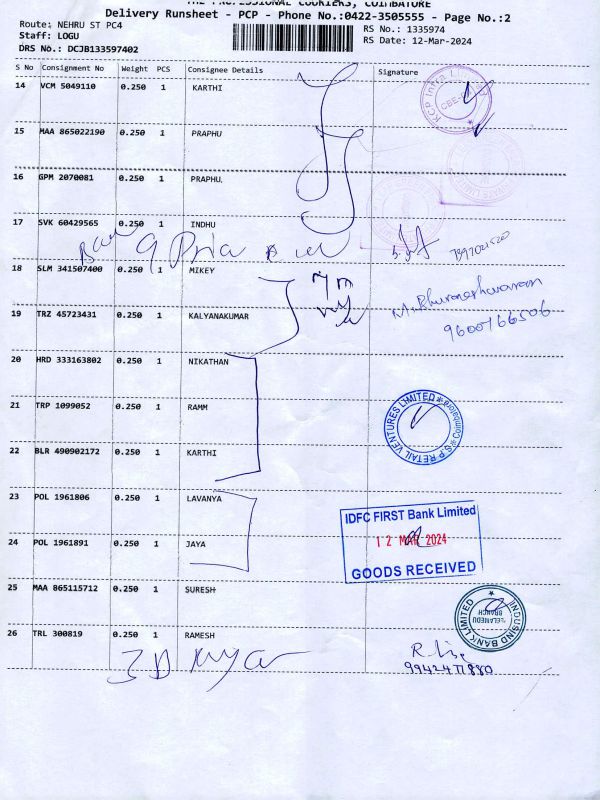 THE PROFESSIONAL COURIERS, COIMBATORE
Delivery Runsheet - PCP - Phone No.:0422-3505555 - Page No.:2
Route: NEHRU ST PC4
RS No.: 1335974
Staff: LOGU
RS Date: 12-Mar-2024
DRS No.: DCJB133597402
S No Consignment No Weight PCS Consignee Details Signature
14 VCM 5049110 0.250 1 KARTHI
KCP Infra Limited
CBE
15 MAA 865022190 0.250 1 PRAPHU
16 GPM 2070081 0.250 1 PRAPHU
17 SVK 60429565 0.250 1 INDHU
18 SLM 341507400 0.250 1 MIKEY
M. Bhuvaneshwaran
9600766506
19 TRZ 45723431 0.250 1 KALYANAKUMAR
20 HRD 333163802 0.250 1 NIKATHAN
21 TRP 1099052 0.250 1 RAMM
S P RETAIL VENTURES LIMITED * Coimbatore *
22 BLR 490902172 0.250 1 KARTHI
23 POL 1961806 0.250 1 LAVANYA
IDFC FIRST Bank Limited
12 MAR 2024
GOODS RECEIVED
24 POL 1961891 0.250 1 JAYA
25 MAA 865115712 0.250 1 SURESH
INDUSIND BANK LIMITED
PEELAMEDU
BRANCH
26 TRL 300819 0.250 1 RAMESH